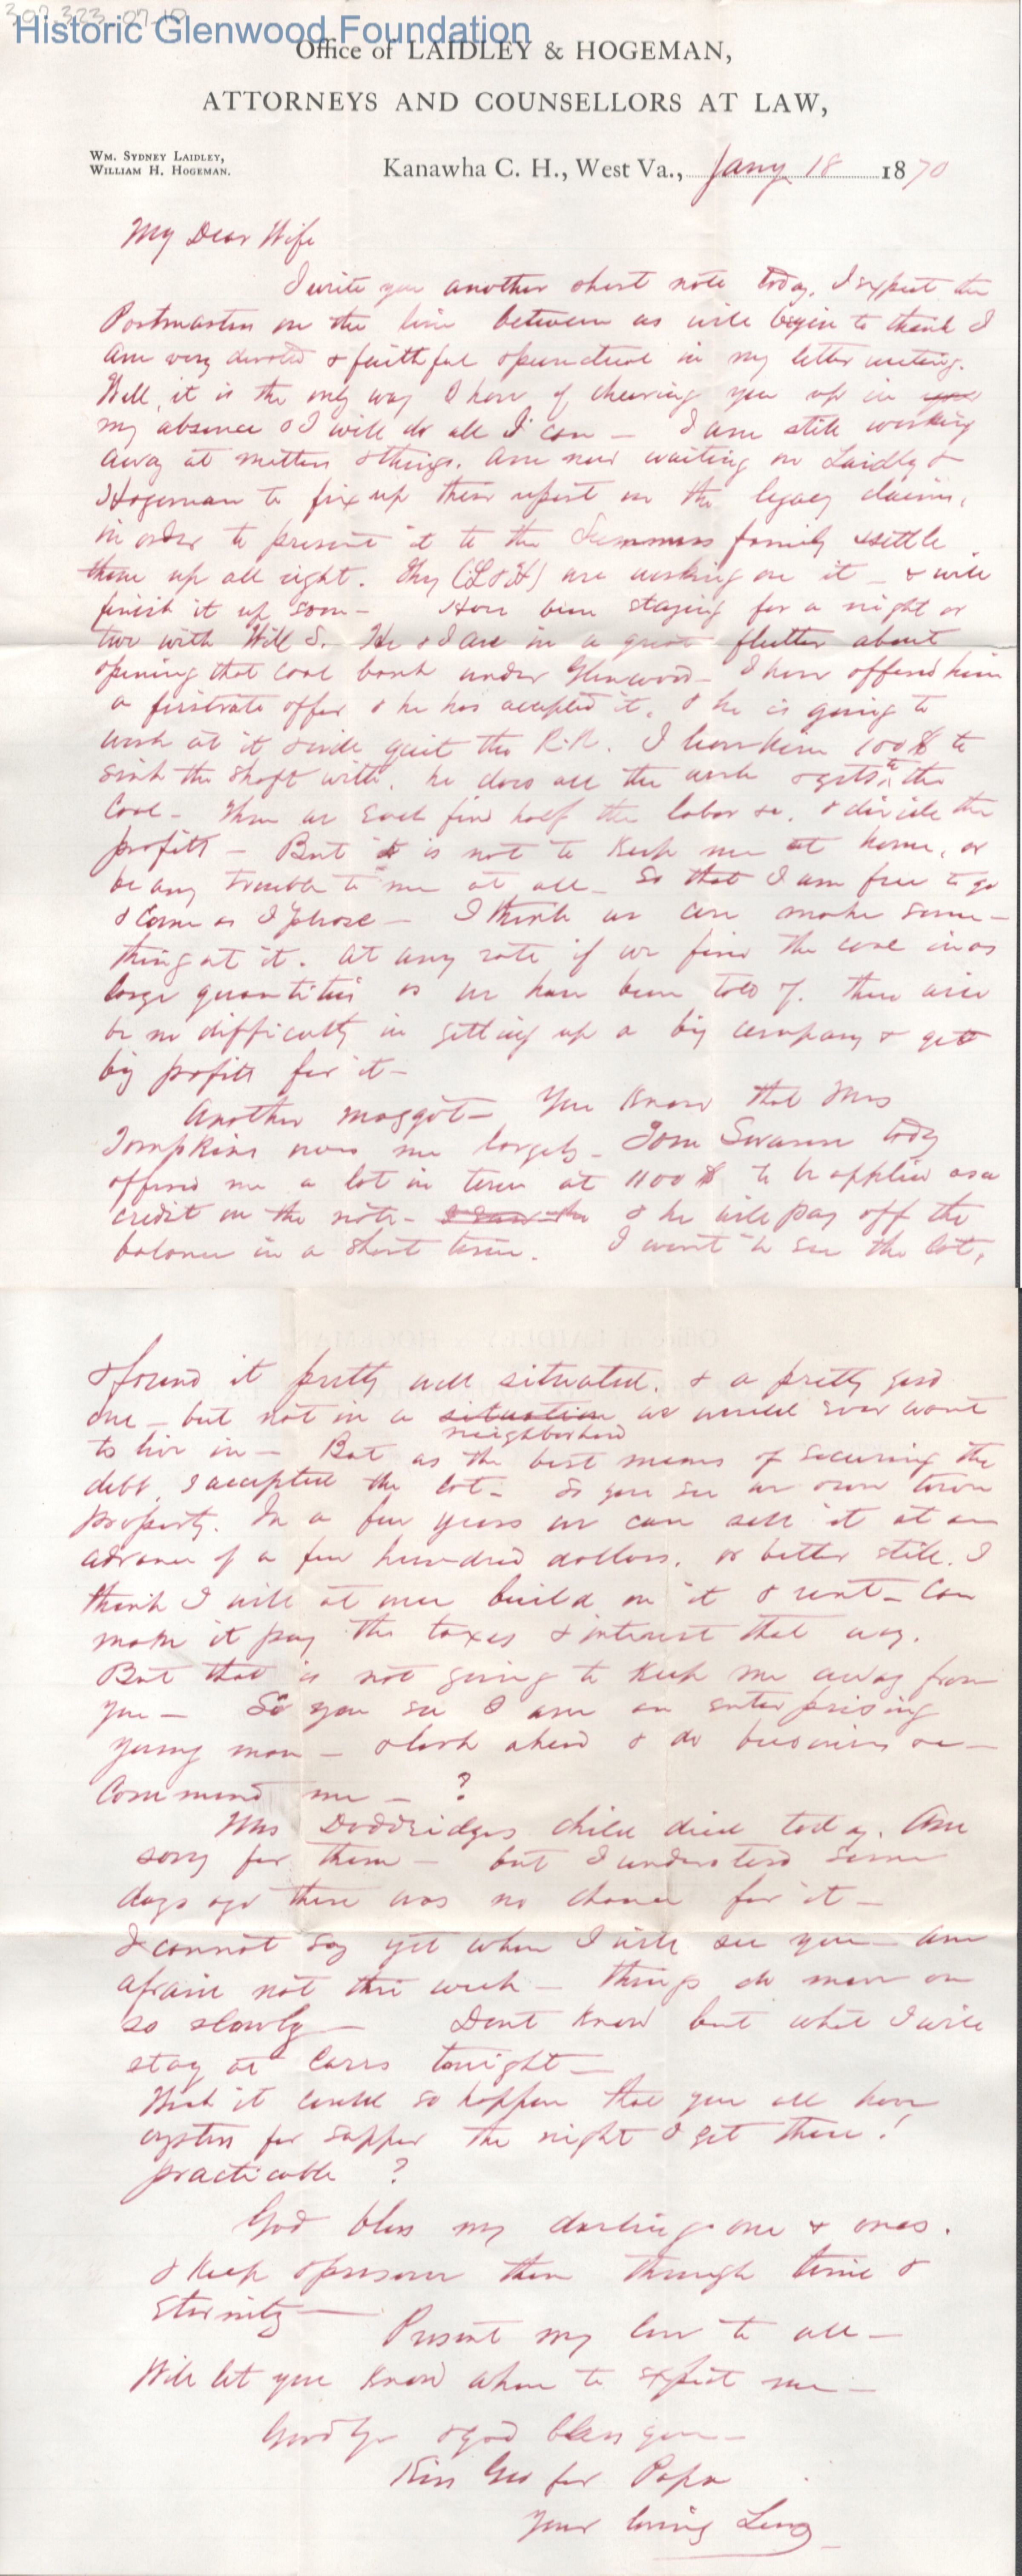 307.323-07-10
Historic Glenwood Foundation
Office of LAIDLEY & HOGEMAN,
ATTORNEYS AND COUNSELLORS AT LAW,
WM. SYDNEY LAIDLEY,
WILLIAM H. HOGEMAN.
Kanawha C. H., West Va., Jany 18 1870
My Dear Wife
I write you another short note today. I expect the
Postmasters on the line between us will begin to think I
am very devoted & faithful & punctual in my letter writing.
Well, it is the only way I have of cheering you up in
my absence & I will do all I can — I am still working
away at matters & things. Am now waiting on Laidly &
Hogeman to fix up their report on the legacy claims,
in order to present it to the Summers family & settle
them up all right. They (L & H) are working on it — & will
finish it up soon — Have been staying for a night or
two with Will S. He & I are in a great flutter about
opening that coal bank under Glenwood — I have offered him
a firstrate offer & he has accepted it, & he is going to
work at it & will quit the R.R. I loan him 100$ to
sink the shaft with, he does all the work & gets to the
Coal — Then we each find half the labor &c. & divide the
profits — But it is not to keep me at home, or
be any trouble to me at all — So that I am free to go
& come as I please — I think we can make some—
thing at it. At any rate if we find the coal in as
large quantities as we have been told of. There will
be no difficulty in getting up a big company & get
big profits for it —
Another maggot — You know that Mrs
Tompkins owes me largely — Tom Swann today
offered me a lot in town at 1100$ to be applied as a
credit on the note — & he will pay off the
balance in a short time. I went to see the lot,
& found it pretty well situated, & a pretty good
one — but not in a situation we would ever want
neighborhood
to live in — But as the best means of securing the
debt, I accepted the lot — So you see we own town
property. In a few years we can sell it at an
advance of a few hundred dollars, or better still. I
think I will at once build on it & rent — Can
make it pay the taxes & interest that way.
But that is not going to keep me away from
you — So you see I am an enterprising
young man — & look ahead & do business &c —
Commend me — ?
Mrs Doddridges child died today. Am
sorry for them — but I understood some
days ago there was no chance for it —
I cannot say yet when I will see you — Am
afraid not this week — things do move on
so slowly — Dont know but what I will
stay at Carrs tonight —
Wish it could so happen that you all have
oysters for supper the night I get there!
practicable ?
God bless my darling one & ones.
& keep & preserve them through time &
eternity —
Present my love to all —
Will let you know when to expect me —
Goodbye & god bless you —
Kiss Geo for Papa
Your loving